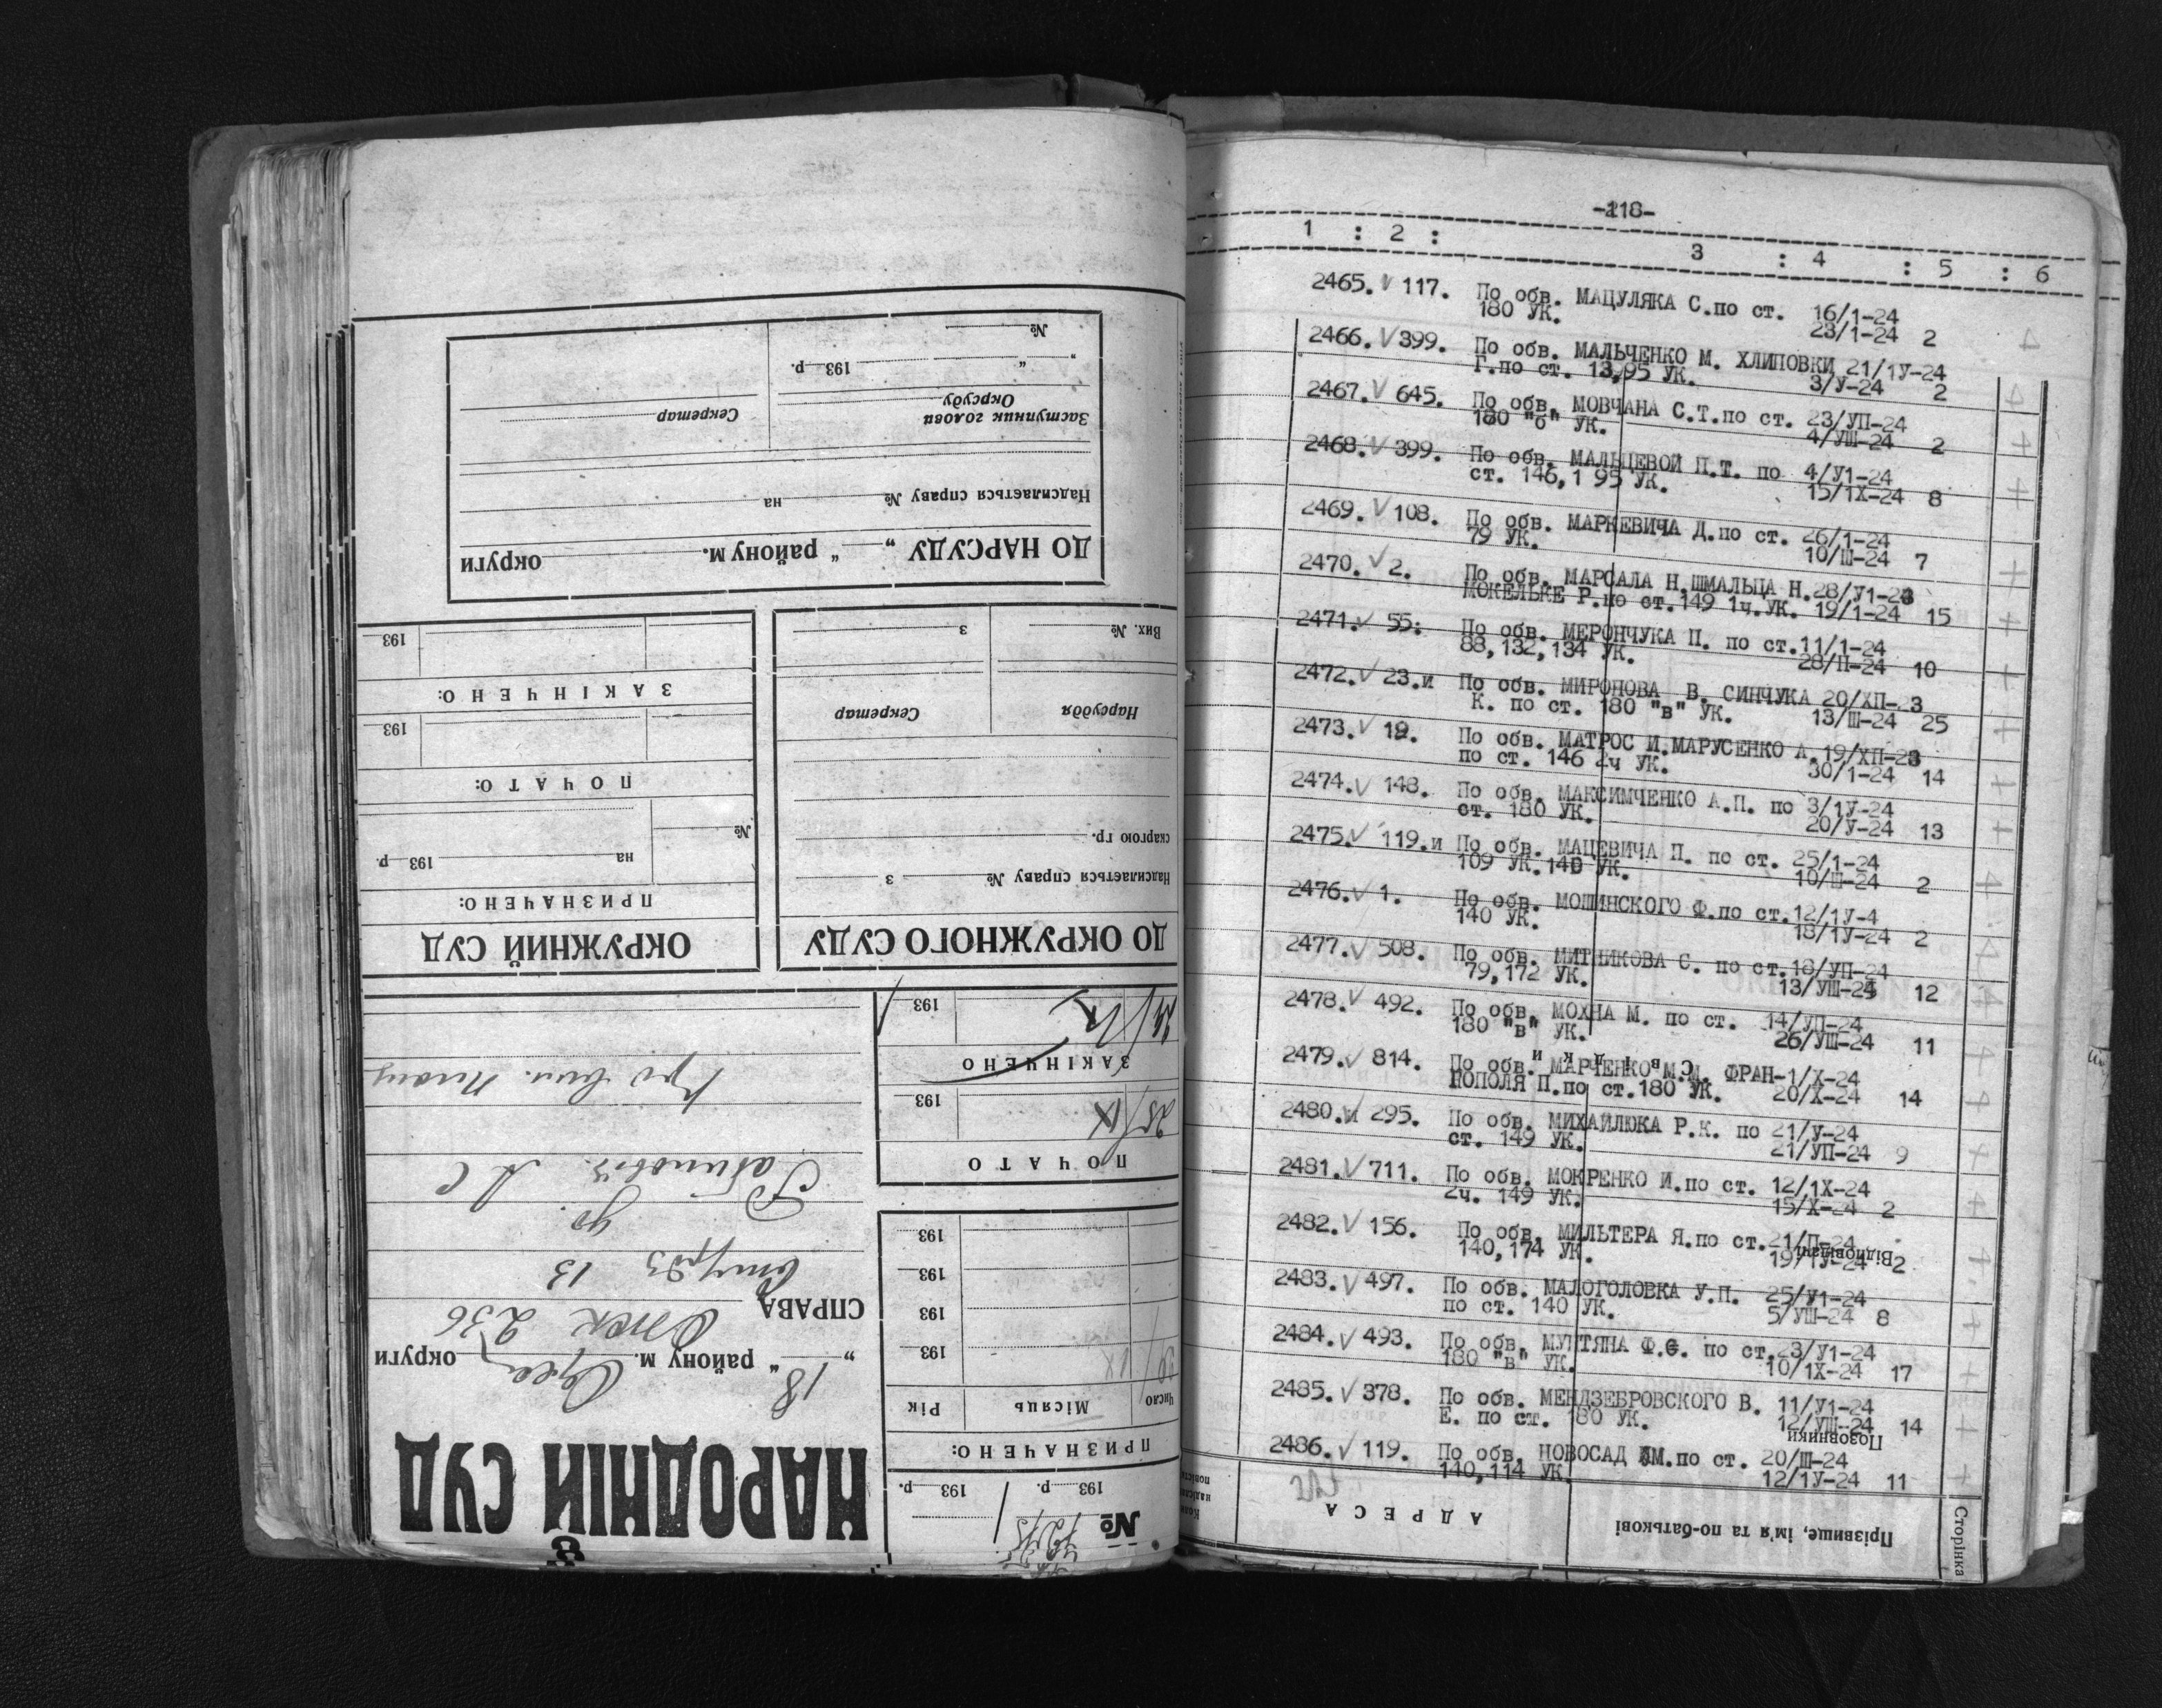 №
„ “ 193 р.
Заступник голови
Окрсуду
Секретар
Надсилається справу № на
ДО НАРСУДУ „ “ району м. округи
Вих. № з
Нарсуддя Секретар
скаргою гр.
Надсилається справу № з
ДО ОКРУЖНОГО СУДУ
193
ЗАКІНЧЕНО:
193
ПОЧАТО:
№ на 193 р.
ПРИЗНАЧЕНО:
ОКРУЖНИЙ СУД
193
ЗАКІНЧЕНО
25/IX 193
ПОЧАТО
193
193
193
193
Число Місяць Рік
ПРИЗНАЧЕНО:
193 р. 193 р.
№
8
НАРОДНІЙ СУД
„18“ району м. округи
236
СПРАВА
13
-118-
1 : 2 : 3 : 4 : 5 : 6
2465. V 117. По обв. МАЦУЛЯКА С.по ст. 16/1-24
180 УК. 23/1-24 2
2466. V 399. По обв. МАЛЬЧЕНКО М. ХЛИПОВКИ 21/1У-24
Г.по ст. 13,95 УК. 3/У-24 2
2467. V 645. По обв. МОВЧАНА С.Т.по ст. 23/УП-24
180 "б" УК. 4/УШ-24 2
2468. V 399. По обв. МАЛЬЦЕВОЙ П.Т. по 4/У1-24
ст. 146,1 95 УК. 15/1Х-24 8
2469. V 108. По обв. МАРКЕВИЧА Д.по ст. 26/1-24
79 УК. 10/Ш-24 7
2470. V 2. По обв. МАРСАЛА Н.ШМАЛЬЦА Н.28/У1-23
МОКЕЛЬКЕ Р.по ст.149 1ч.УК. 19/1-24 15
2471. V 55. По обв. МЕРОНЧУКА П. по ст.11/1-24
88,132,134 УК. 28/П-24 10
2472. V 23.и По обв. МИРОНОВА В. СИНЧУКА 20/ХП-23
К. по ст. 180 "в" УК. 13/Ш-24 25
2473. V 19. По обв. МАТРОС И.МАРУСЕНКО А.19/ХП-23
по ст. 146 2ч УК. 30/1-24 14
2474. V 148. По обв. МАКСИМЧЕНКО А.П. по 3/1У-24
ст. 180 УК. 20/У-24 13
2475. V 119.и По обв. МАЦЕВИЧА П. по ст. 25/1-24
109 УК.140 УК. 10/Ш-24 2
2476. V 1. По обв. МОШИНСКОГО Ф.по ст.12/1У-4
140 УК. 18/1У-24 2
2477. V 508. По обв. МИТНИКОВА С. по ст.18/УП-24
79,172 УК. 13/УШ-24 12
2478. V 492. По обв. МОХНА М. по ст. 14/УП-24
180 "в" УК. 26/УШ-24 11
Свідки
2479. V 814. По обв. МАРЧЕНКО М.М. ФРАН-1/Х-24
НОПОЛЯ П.по ст.180 УК. 20/Х-24 14
2480. 295. По обв. МИХАЙЛЮКА Р.К. по 21/У-24
ст. 149 УК. 21/УП-24 9
2481. V 711. По обв. МОКРЕНКО И.по ст. 12/1Х-24
2ч. 149 УК. 15/Х-24 2
2482. V 156. По обв. МИЛЬТЕРА Я.по ст.21/П-24
140,174 УК. 19/1У-24 2
Відповідачі
2483. V 497. По обв. МАЛОГОЛОВКА У.П. 25/У1-24
по ст. 140 УК. 5/УШ-24 8
2484. V 493. По обв. МУНТЯНА Ф.С. по ст.23/У1-24
180 "в" УК. 10/1Х-24 17
2485. V 378. По обв. МЕНДЗЕБРОВСКОГО В. 11/У1-24
Е. по ст. 180 УК. 12/УШ-24 14
Позовники
2486. V 119. По обв. НОВОСАД М.по ст. 20/Ш-24
140,114 УК. 12/1У-24 11
Сторінка Прізвище, ім'я та по-батькові АДРЕСА